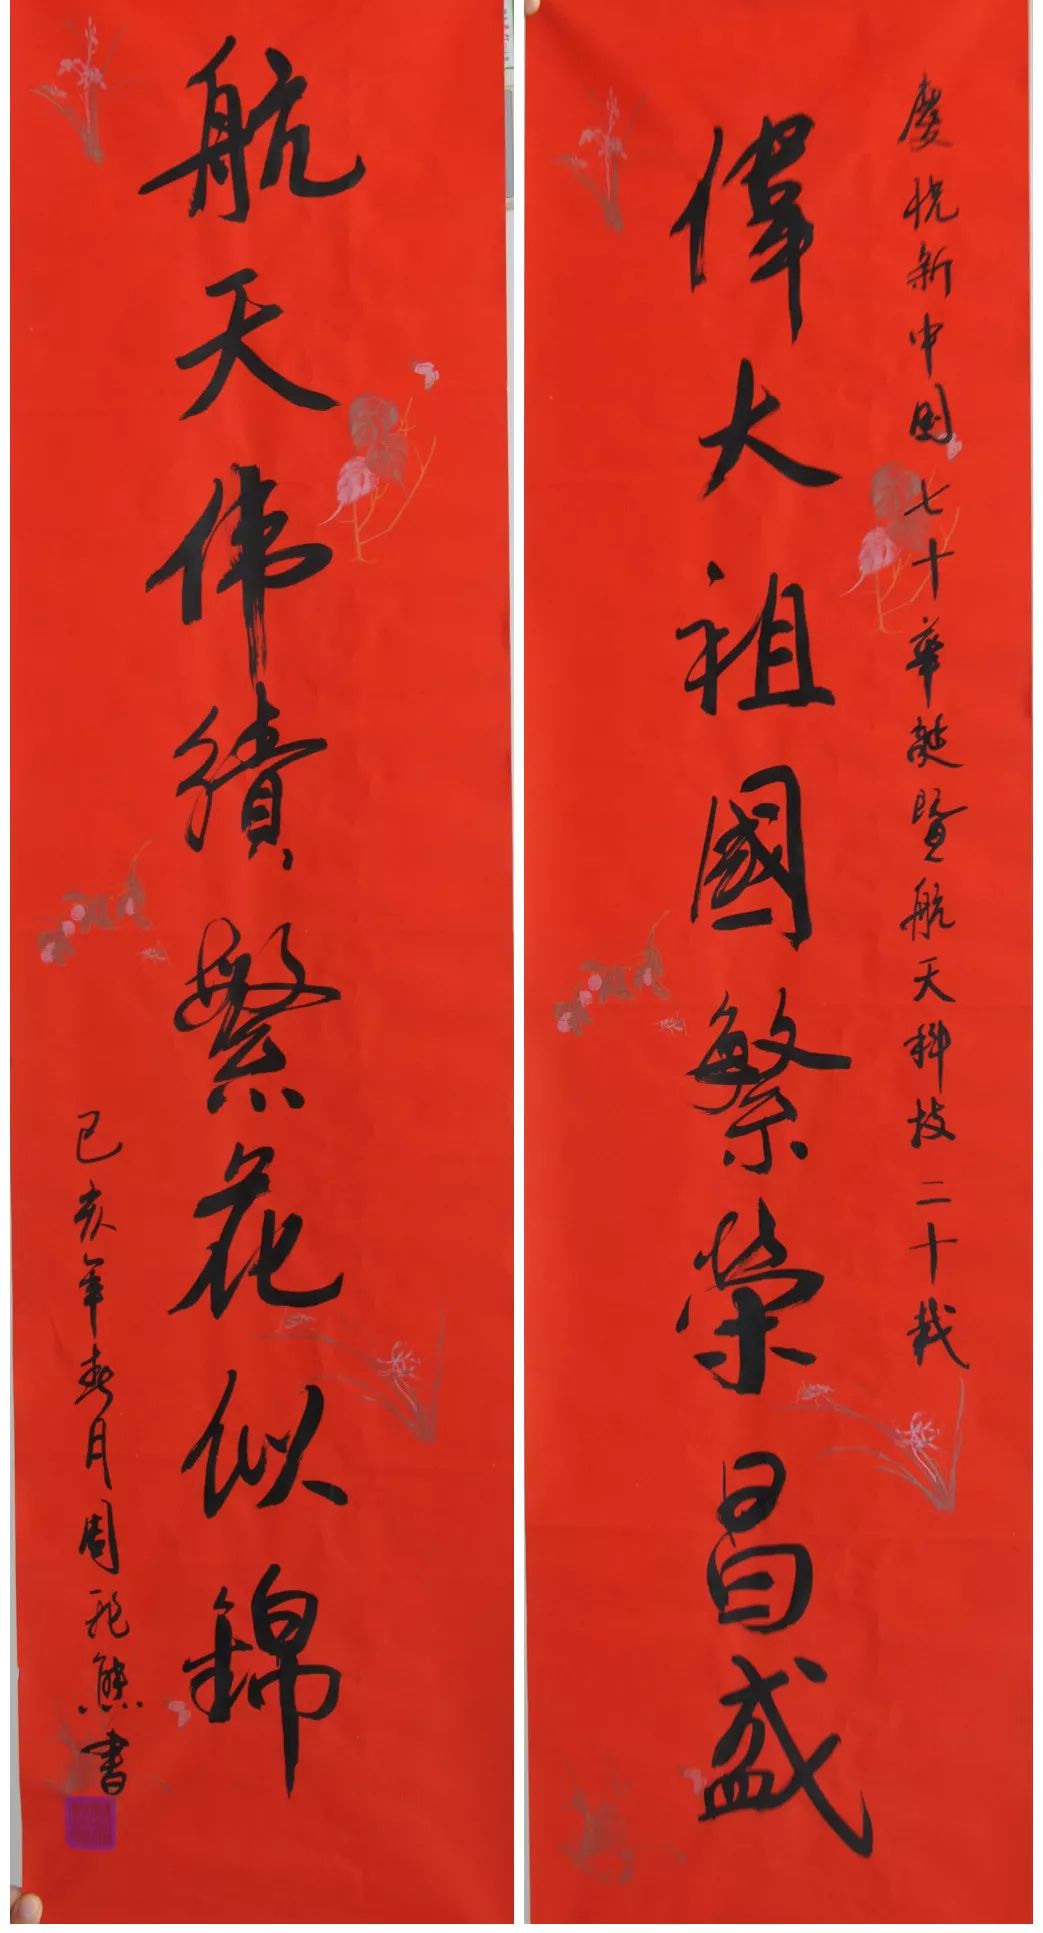 慶祝新中国七十華誕暨航天科技二十載
偉大祖國繁榮昌盛
航天伟績繁花似錦
己亥年春月周飛熊書